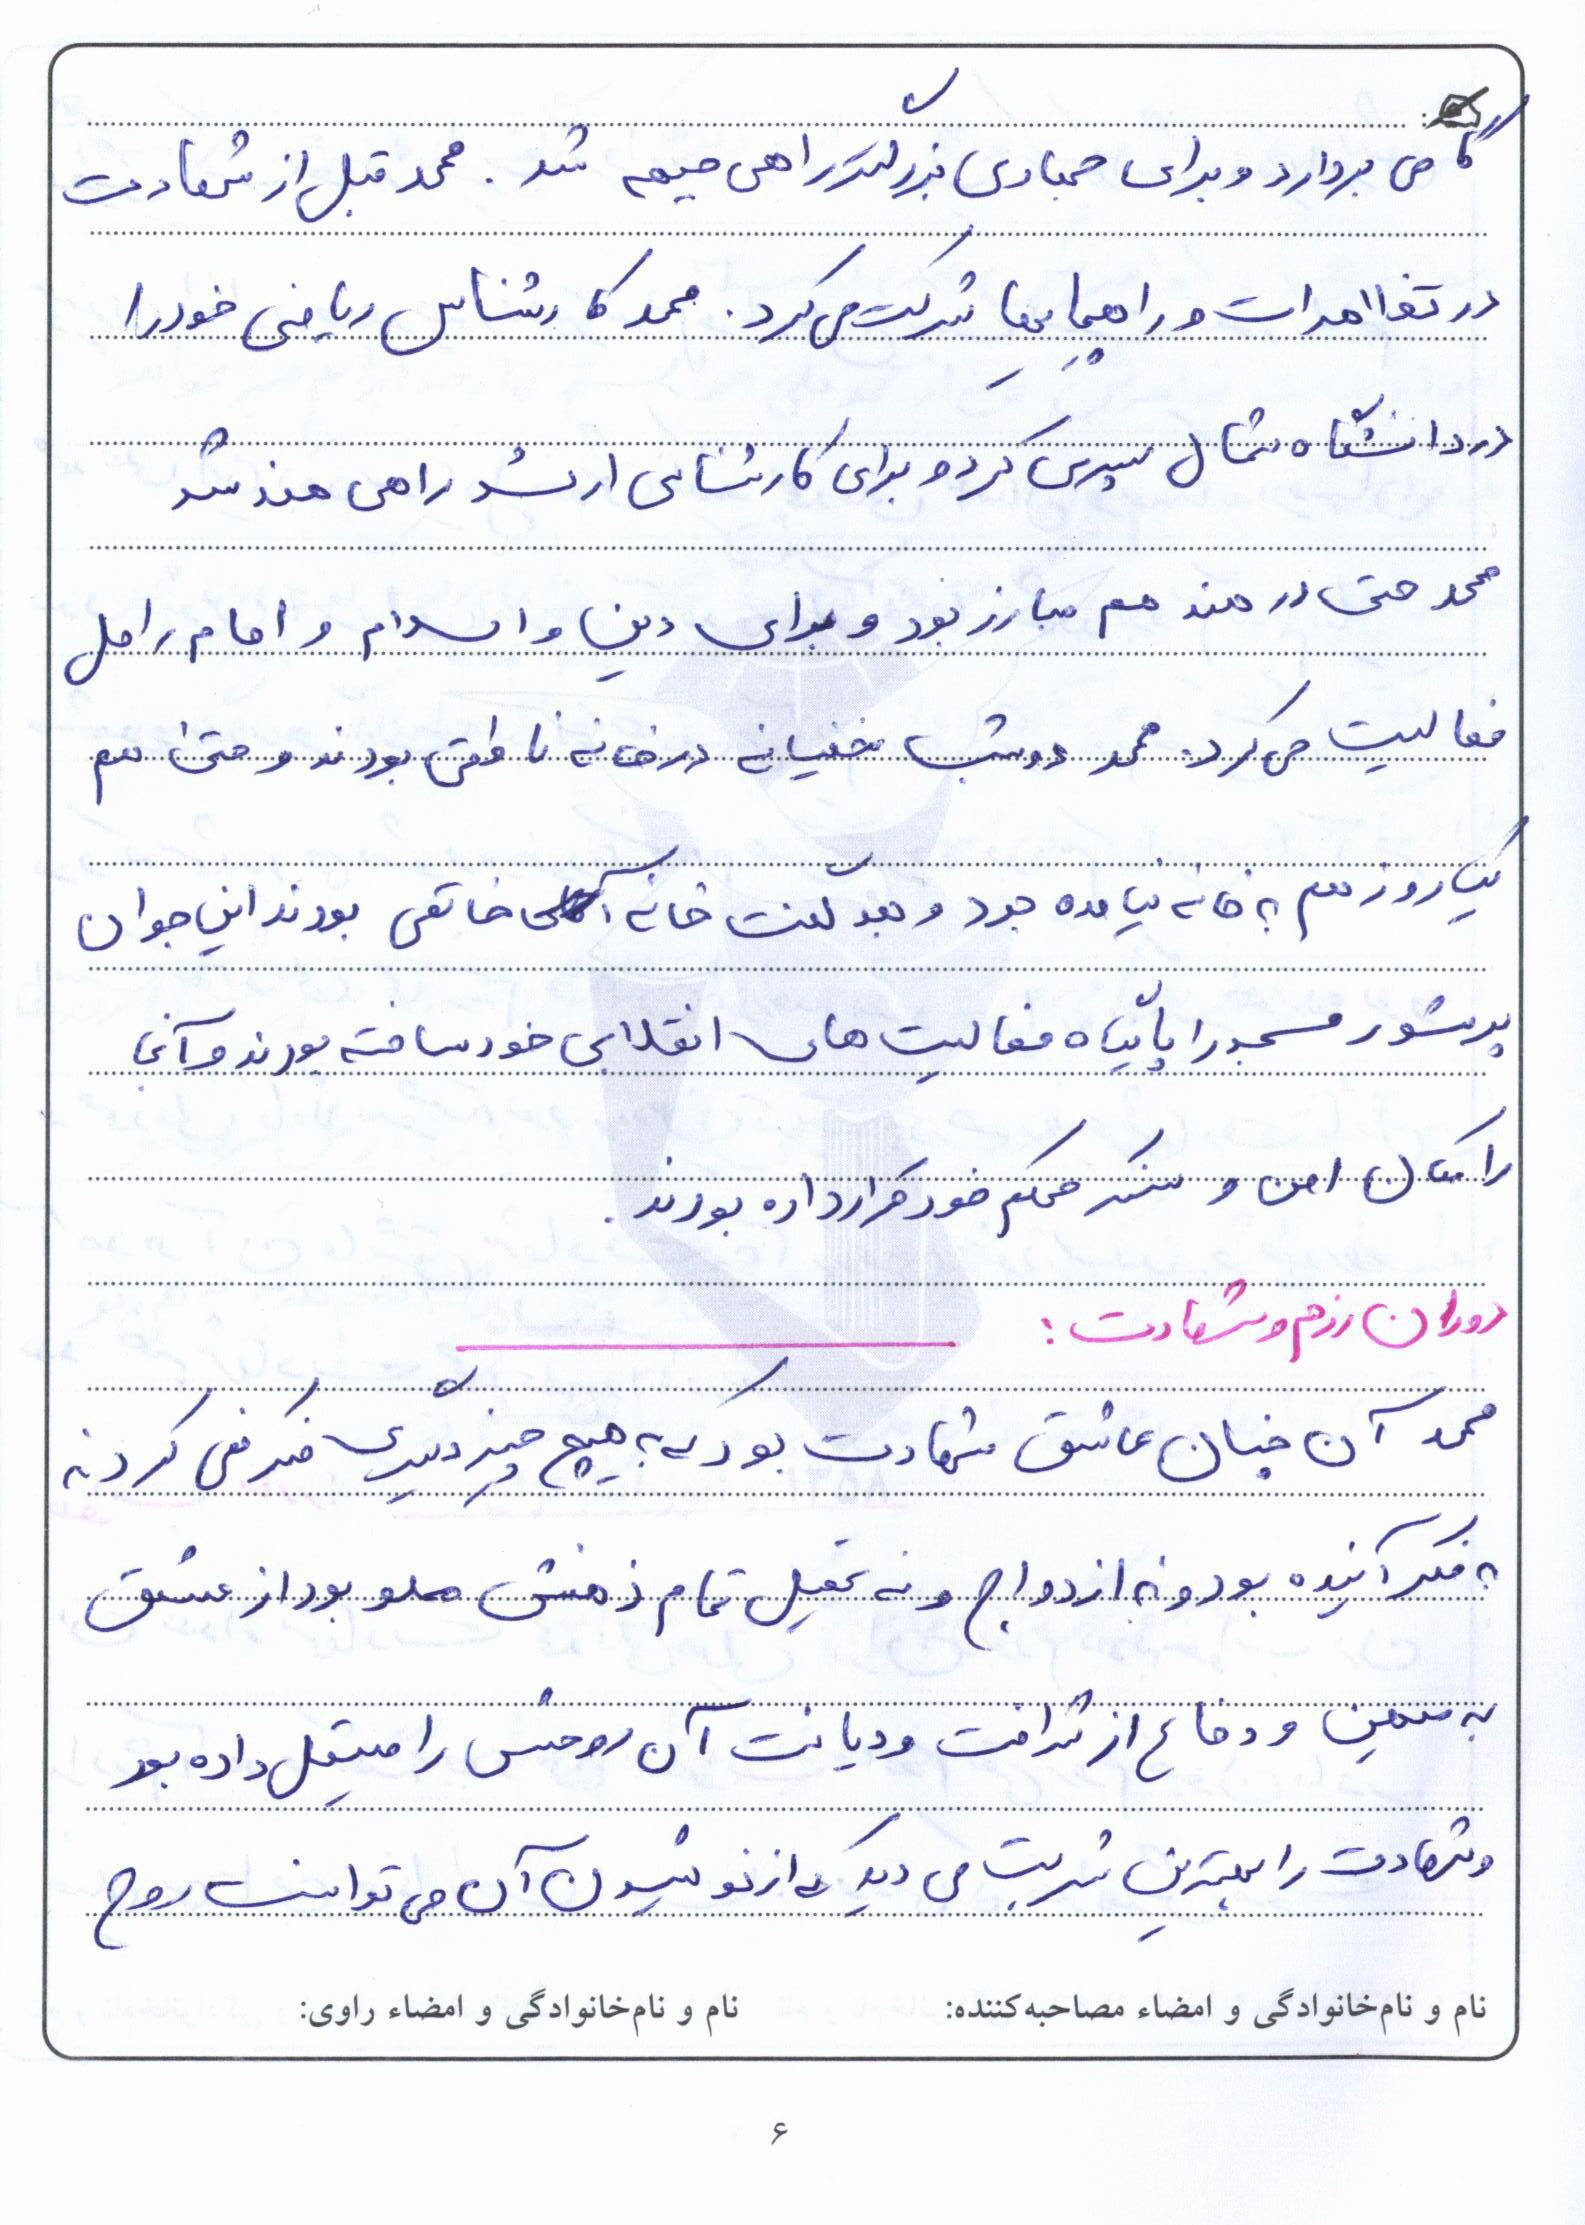 گامی بردارد و برای جهادی بزرگتر راهی جبهه شد. محمد قبل از شهادت
در تظاهرات و راهپیمایی‌ها شرکت می‌کرد. محمد کارشناس ریاضی خود را
در دانشگاه شمال سپری کرد و برای کارشناسی ارشد راهی هند شد
محمد حتی در هند هم مبارز بود و برای دین و اسلام و امام راحل
فعالیت می‌کرد. محمد دو شب مخفیانه در خانه ناطقی بودند و حتی هم
یک روز هم به خانه نیامده بود و بعد گفت خانه آقای خاتمی بودند این جوان
پرشور مسجد را پایگاه فعالیت های انقلابی خود ساخته بودند و آنجا
را مکان امن و سنگر محکم خود قرار داده بودند.
دوران رزم و شهادت:
محمد آن چنان عاشق شهادت بود که به هیچ چیز دیگری فکر نمی کرد نه
به فکر آینده بود و نه ازدواج و نه تحصیل تمام ذهنش مملو بود از عشق
به میهن و دفاع از شرافت و دیانت آن روحش را صیقل داده بود
و شهادت را بهترین شربت می دید که از نوشیدن آن می توانست روح
نام و نام‌خانوادگی و امضاء مصاحبه‌کننده: نام و نام‌خانوادگی و امضاء راوی:
۶